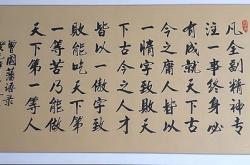 凡全副精神專
注一事終身必
有成就天下古
今之庸人皆以
一惰字致敗天
下古今之人才
皆以一傲字致
敗能吃天下第
一等苦乃能做
天下第一等人
曾國藩語录